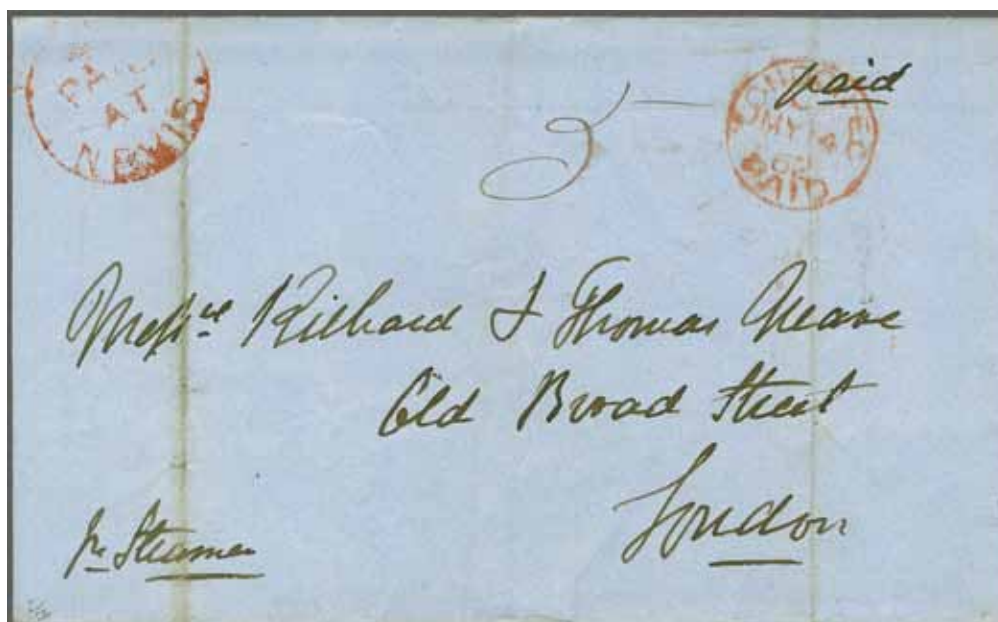 PAID
AT
NEVIS
paid
MY
PAID
5
Messrs Richard & Thomas Neave
Old Broad Street
London
pr Steamer